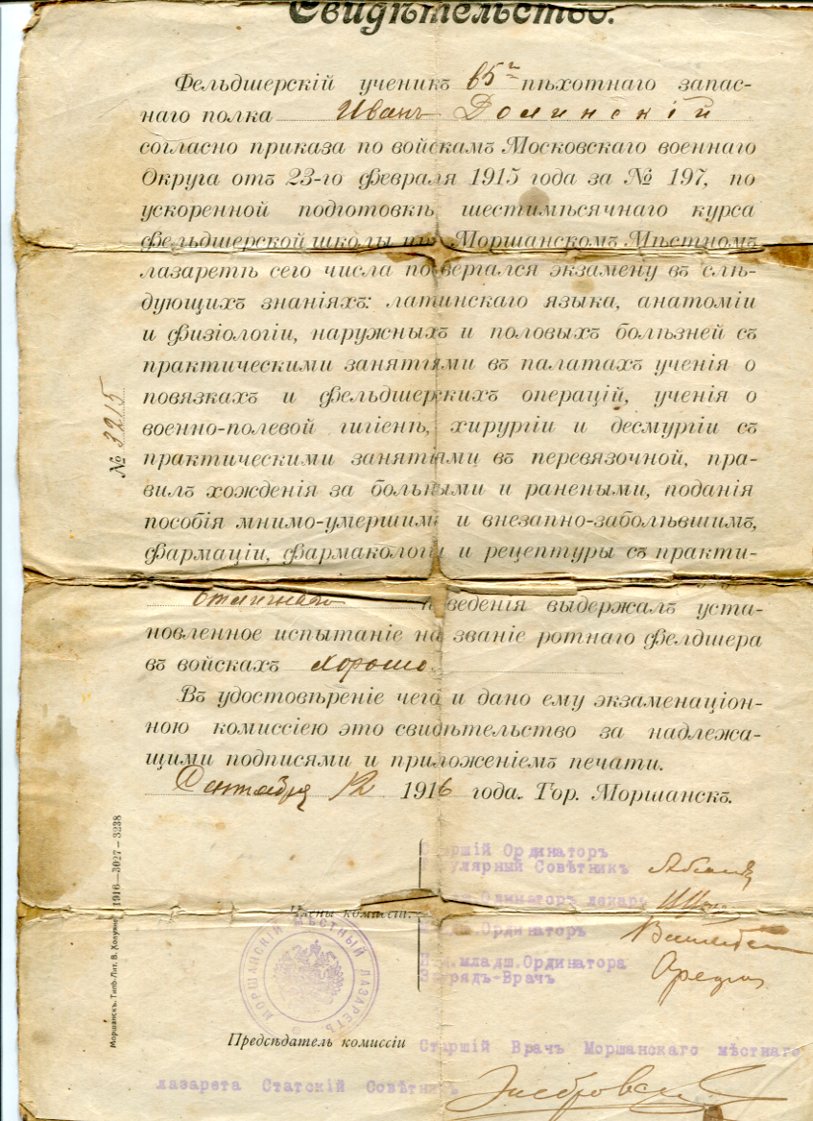 Свидѣтельство.
Фельдшерскій ученикъ 65го пѣхотнаго запас-
наго полка Иванъ Долинскій
согласно приказа по войскамъ Московскаго военнаго
Округа отъ 23-го февраля 1915 года за № 197, по
ускоренной подготовкѣ шестимѣсячнаго курса
фельдшерской школы при Моршанскомъ Мѣстномъ
лазаретѣ сего числа подвергался экзамену въ слѣ-
дующихъ знаніяхъ: латинскаго языка, анатоміи
и физіологіи, наружныхъ и половыхъ болѣзней съ
практическими занятіями въ палатахъ ученія о
повязкахъ и фельдшерскихъ операцій, ученія о
военно-полевой гигіенѣ, хирургіи и десмургіи съ
практическими занятіями въ перевязочной, пра-
вилъ хожденія за больными и ранеными, поданія
пособія мнимо-умершимъ и внезапно-заболѣвшимъ,
фармаціи, фармакологіи и рецептуры съ практи-
отличнаго поведенія выдержалъ уста-
новленное испытаніе на званіе ротнаго фелдшера
въ войскахъ хорошо.
Въ удостовѣреніе чего и дано ему экзаменаціон-
ною комиссіею это свидѣтельство за надлежа-
щими подписями и приложеніемъ печати.
Сентября 12 1916 года. Гор. Моршанскъ.
№ 3215
Моршанскъ. Типо-Лит. В. Холуянов 1916—3027—3238
Старшій Ординаторъ
Титулярный Совѣтникъ
Младш.Ординаторъ лекарь
Члены комиссіи:
Младш.Ординаторъ
И.д.младш.Ординатора
Заурядъ-Врачъ
МОРШАНСКІЙ МѢСТНЫЙ ЛАЗАРЕТЪ
Предсѣдатель комиссіи Старшій Врачъ Моршанскаго мѣстнаго
лазарета Статскій Совѣтникъ